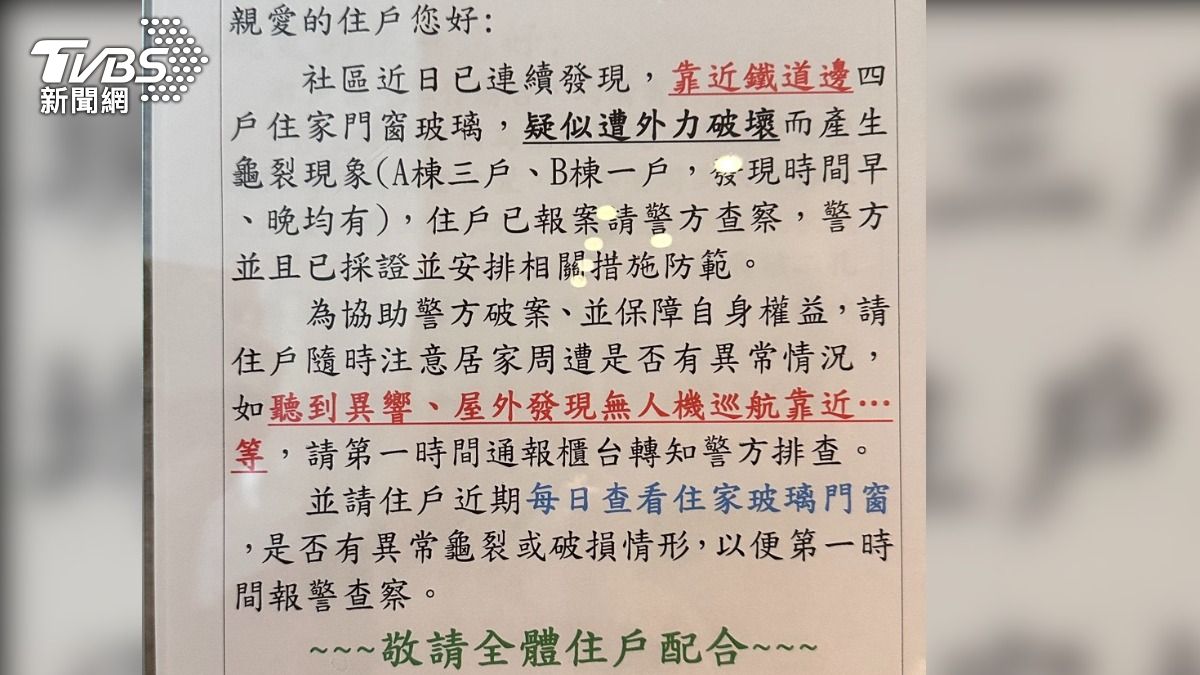 TVBS
新聞網
親愛的住戶您好:
社區近日已連續發現，靠近鐵道邊四
戶住家門窗玻璃，疑似遭外力破壞而產生
龜裂現象(A棟三戶、B棟一戶，發現時間早
、晚均有)，住戶已報案請警方查察，警方
並且已採證並安排相關措施防範。
為協助警方破案、並保障自身權益，請
住戶隨時注意居家周遭是否有異常情況，
如聽到異響、屋外發現無人機巡航靠近…
等，請第一時間通報櫃台轉知警方排查。
並請住戶近期每日查看住家玻璃門窗
，是否有異常龜裂或破損情形，以便第一時
間報警查察。
~~~敬請全體住戶配合~~~